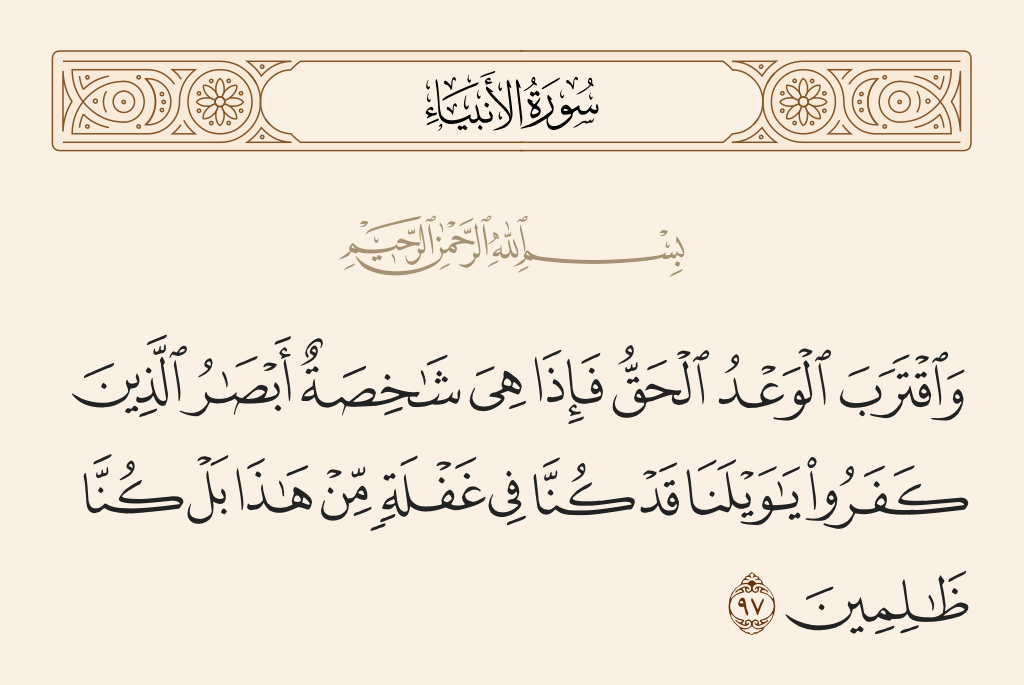 سُورَةُ الأَنبِيَاءِ
بِسْمِ ٱللَّهِ ٱلرَّحْمَٰنِ ٱلرَّحِيمِ
وَٱقْتَرَبَ ٱلْوَعْدُ ٱلْحَقُّ فَإِذَا هِىَ شَٰخِصَةٌ أَبْصَٰرُ ٱلَّذِينَ
كَفَرُوا۟ يَٰوَيْلَنَا قَدْ كُنَّا فِى غَفْلَةٍ مِّنْ هَٰذَا بَلْ كُنَّا
ظَٰلِمِينَ ٩٧